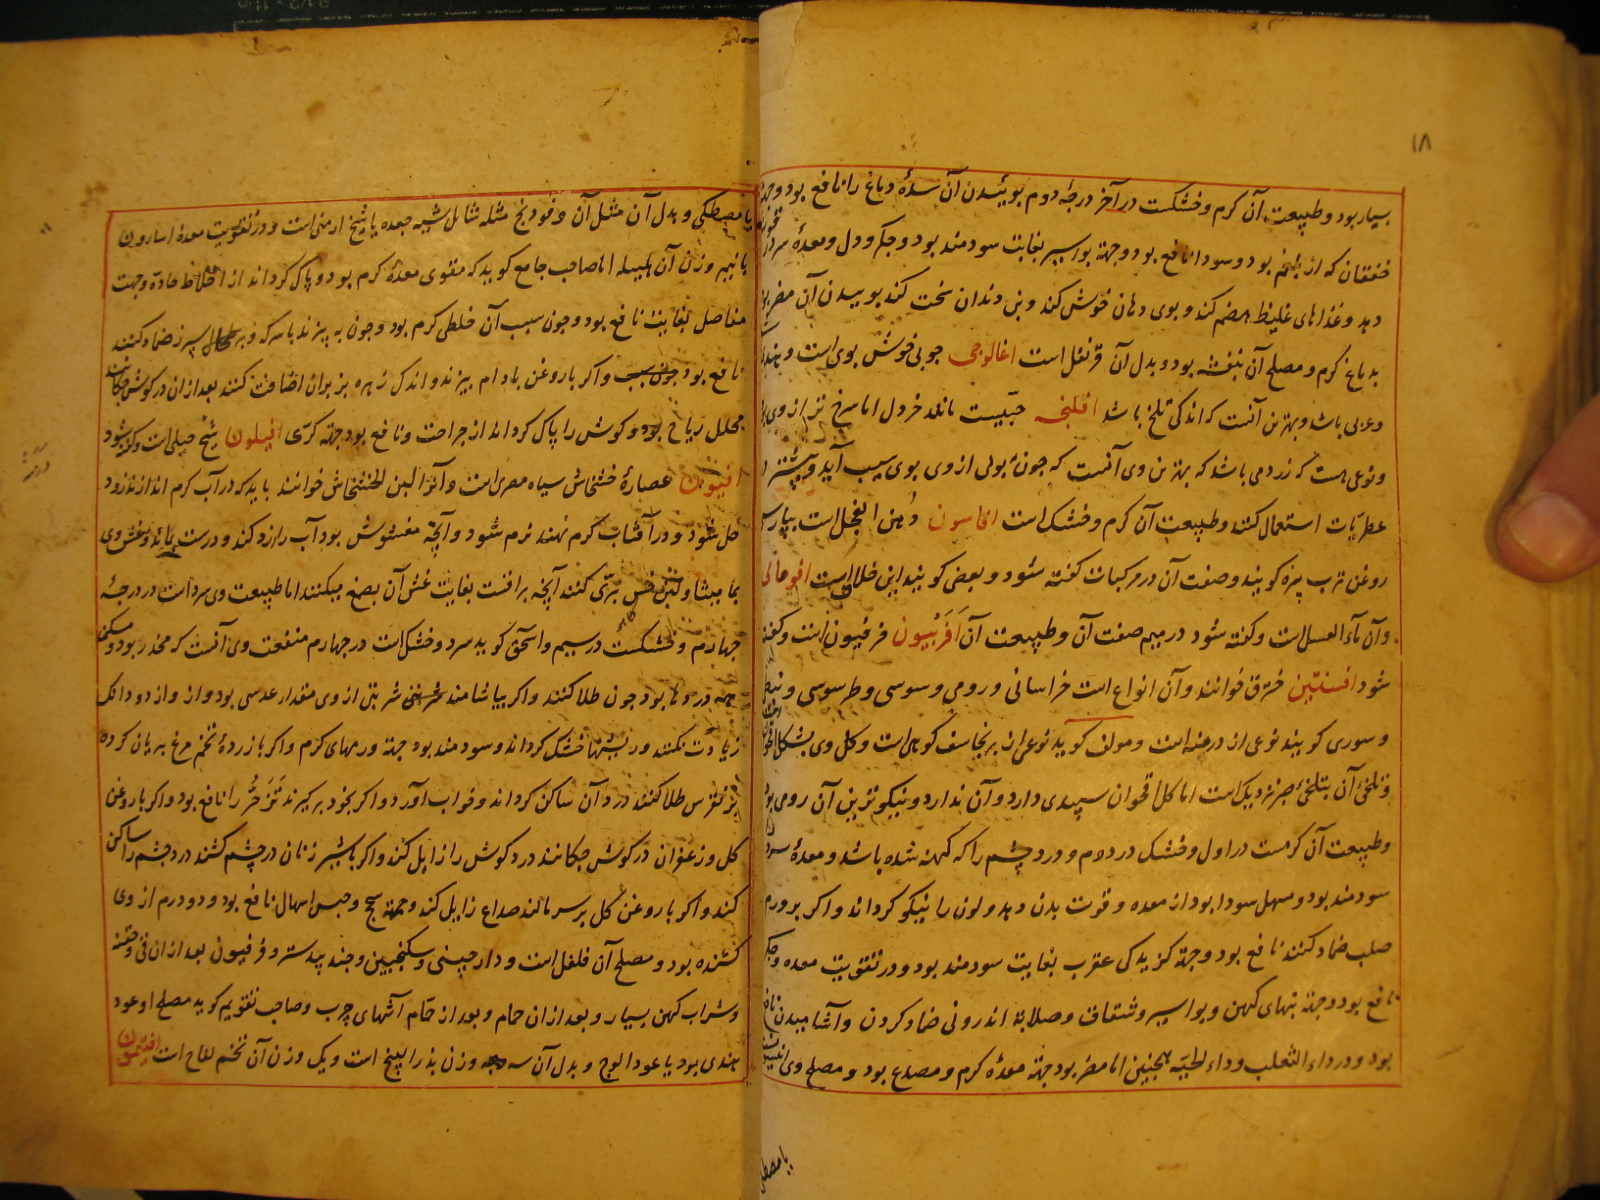 ۱۸
بسیار بود و طبیعت آن کرم و خشکست در آخر درجهٔ دوم بوئیدن آن سدهٔ دماغ را نافع بود و جهة
خفقان که از بلغم بود و سودا نافع بود و جهة بواسیر بغایت سودمند بود و جکر و دل و معدهٔ سرد را
دهد و غذاهای غلیظ هضم کند و بوی دهان خوش کند و بن دندان سخت کند بوییدن آن مضر بود
بدماغ کرم و مصلح آن بنفشه بود و بدل آن قرنفل است اغالوجی جوبی خوش بوی است و هندی
و عربی باشد و بهترین آنست که اندکی تلخ باشد افلنجه حبیست مانند خردل اما سرخ تر از وی
و نوعی هست که زردمی باشد که بهترین وی آنست که جون بوئی از وی بوی سیب آید و بیشتر در
عطریات استعمال کنند و طبیعت آن کرم و خشک است افاسون دهن الفجل است بپارسی
روغن ترب پزه کویند و صفت آن در مرکبات کفته شود و بعضی کویند این خلاف است افومالی
و آن ماء العسل است و کفته شود در میم صفت آن و طبیعت آن افربیون فرفیون است و کفته
شود افسنتین خترق خوانند و آن انواع است خراسانی و رومی و سوسی و طرسوسی و نبطی
و سوری کویند نوعی از درمنه است و مولف کوید نوعی از برنجاسف کوهی است و کل وی بشکل اقحوان
و تلخی آن بتلخی صبر نزدیک است اما کل اقحوان سپیدی دارد و آن ندارد و نیکوترین آن رومی بود
و طبیعت آن کرمست در اول و خشک در دوم و درد چشم را که کهنه شده باشد و معدهٔ سرد
سودمند بود و مسهل سودا بود از معده و قوت بدن دهد و لون را نیکو کرداند و اکر بر ورم
صلب ضماد کنند نافع بود و جهة کزیدکی عقرب بغایت سودمند بود و در تقویت معده و جکر
نافع بود و جهة تبهای کهن و بواسیر و شقاق و صلابة اندرونی ضماد کردن و آشامیدن نافع
بود و در داء الثعلب و داء الحیه همجنین اما مضر بود جهة معدهٔ کرم و مصدع بود و مصلح وی انیسون
یا مصطکی
یا مصطکی و بدل آن مثل آن و فودنج مثله شامل شبیه جعده یا شیخ ارمنی است و در تقویت معده اسارون
با نیم وزن آن هلیله اما صاحب جامع کوید که مقوی معدهٔ کرم بود و پاک کرداند از اخلاط حاده و جهت
مفاصل بغایت نافع بود و جون سبب آن خلطی کرم بود و جون به پزند با سرکه و بر طحال سپرز ضماد کنند
نافع بود جون سبب و اکر با روغن بادام بپزند و اندک زهره بز بر ان اضافت کنند بعد از ان در کوش جکانند
محلل ریاح بود و کوش را پاک کرداند از جراحت و نافع بود جهة کری افیلون شیح جبلی است و کفته شود
افیون عصارهٔ خشخاش سیاه مصری است و آنرا لبن الخشخاش خوانند باید که در آب کرم اندازند زود
حل شود و در آفتاب کرم نهند نرم شود و آنجه مغشوش بود آب را زرد کند و درست بماند و غش وی
بمامیثا و لبن خس بری کنند آنچه براقست بغایت غش آن بصمغ میکنند اما طبیعت وی سرد است در درجهٔ
جهارم و خشکست در سیم و اسحق کوید سرد و خشک است در جهارم منفعت وی آنست که مخدر بود و مسکن
همه دردها بود جون طلا کنند و اکر بیاشامند شربتی از وی مقدار عدسی بود و از و از دو دانک
زیادت نکنند و ریشها خشک کرداند و سودمند بود جهة ورمهای کرم و اکر با زردهٔ تخم مرغ بریان کرده
بر نقرس طلا کنند درد آن ساکن کرداند و خواب آورد و اکر بخود برکیرند تزحر را نافع بود و اکر با روغن
کل و زعفران در کوش جکانند درد کوش را زایل کند و اکر با شیر زنان در چشم کشند درد چشم را ساکن
کند و اکر با روغن کل بر سر مالند صداع زایل کند و جهة سحج و حبس اسهال نافع بود و دو درم از وی
کشنده بود و مصلح آن فلفل است و دارجینی و سکنجبین و جند بیدستر و فرفیون بعد از ان قی و حقنه
و شراب کهن بسیار و بعد از ان حمام و بعد از حمام آشهای چرب و صاحب تقویم کوید مصلح او عود
هندی بود یا عود الوج و بدل آن سه وزن بذر البنج است و یک وزن آن تخم لفاح است افتیمون